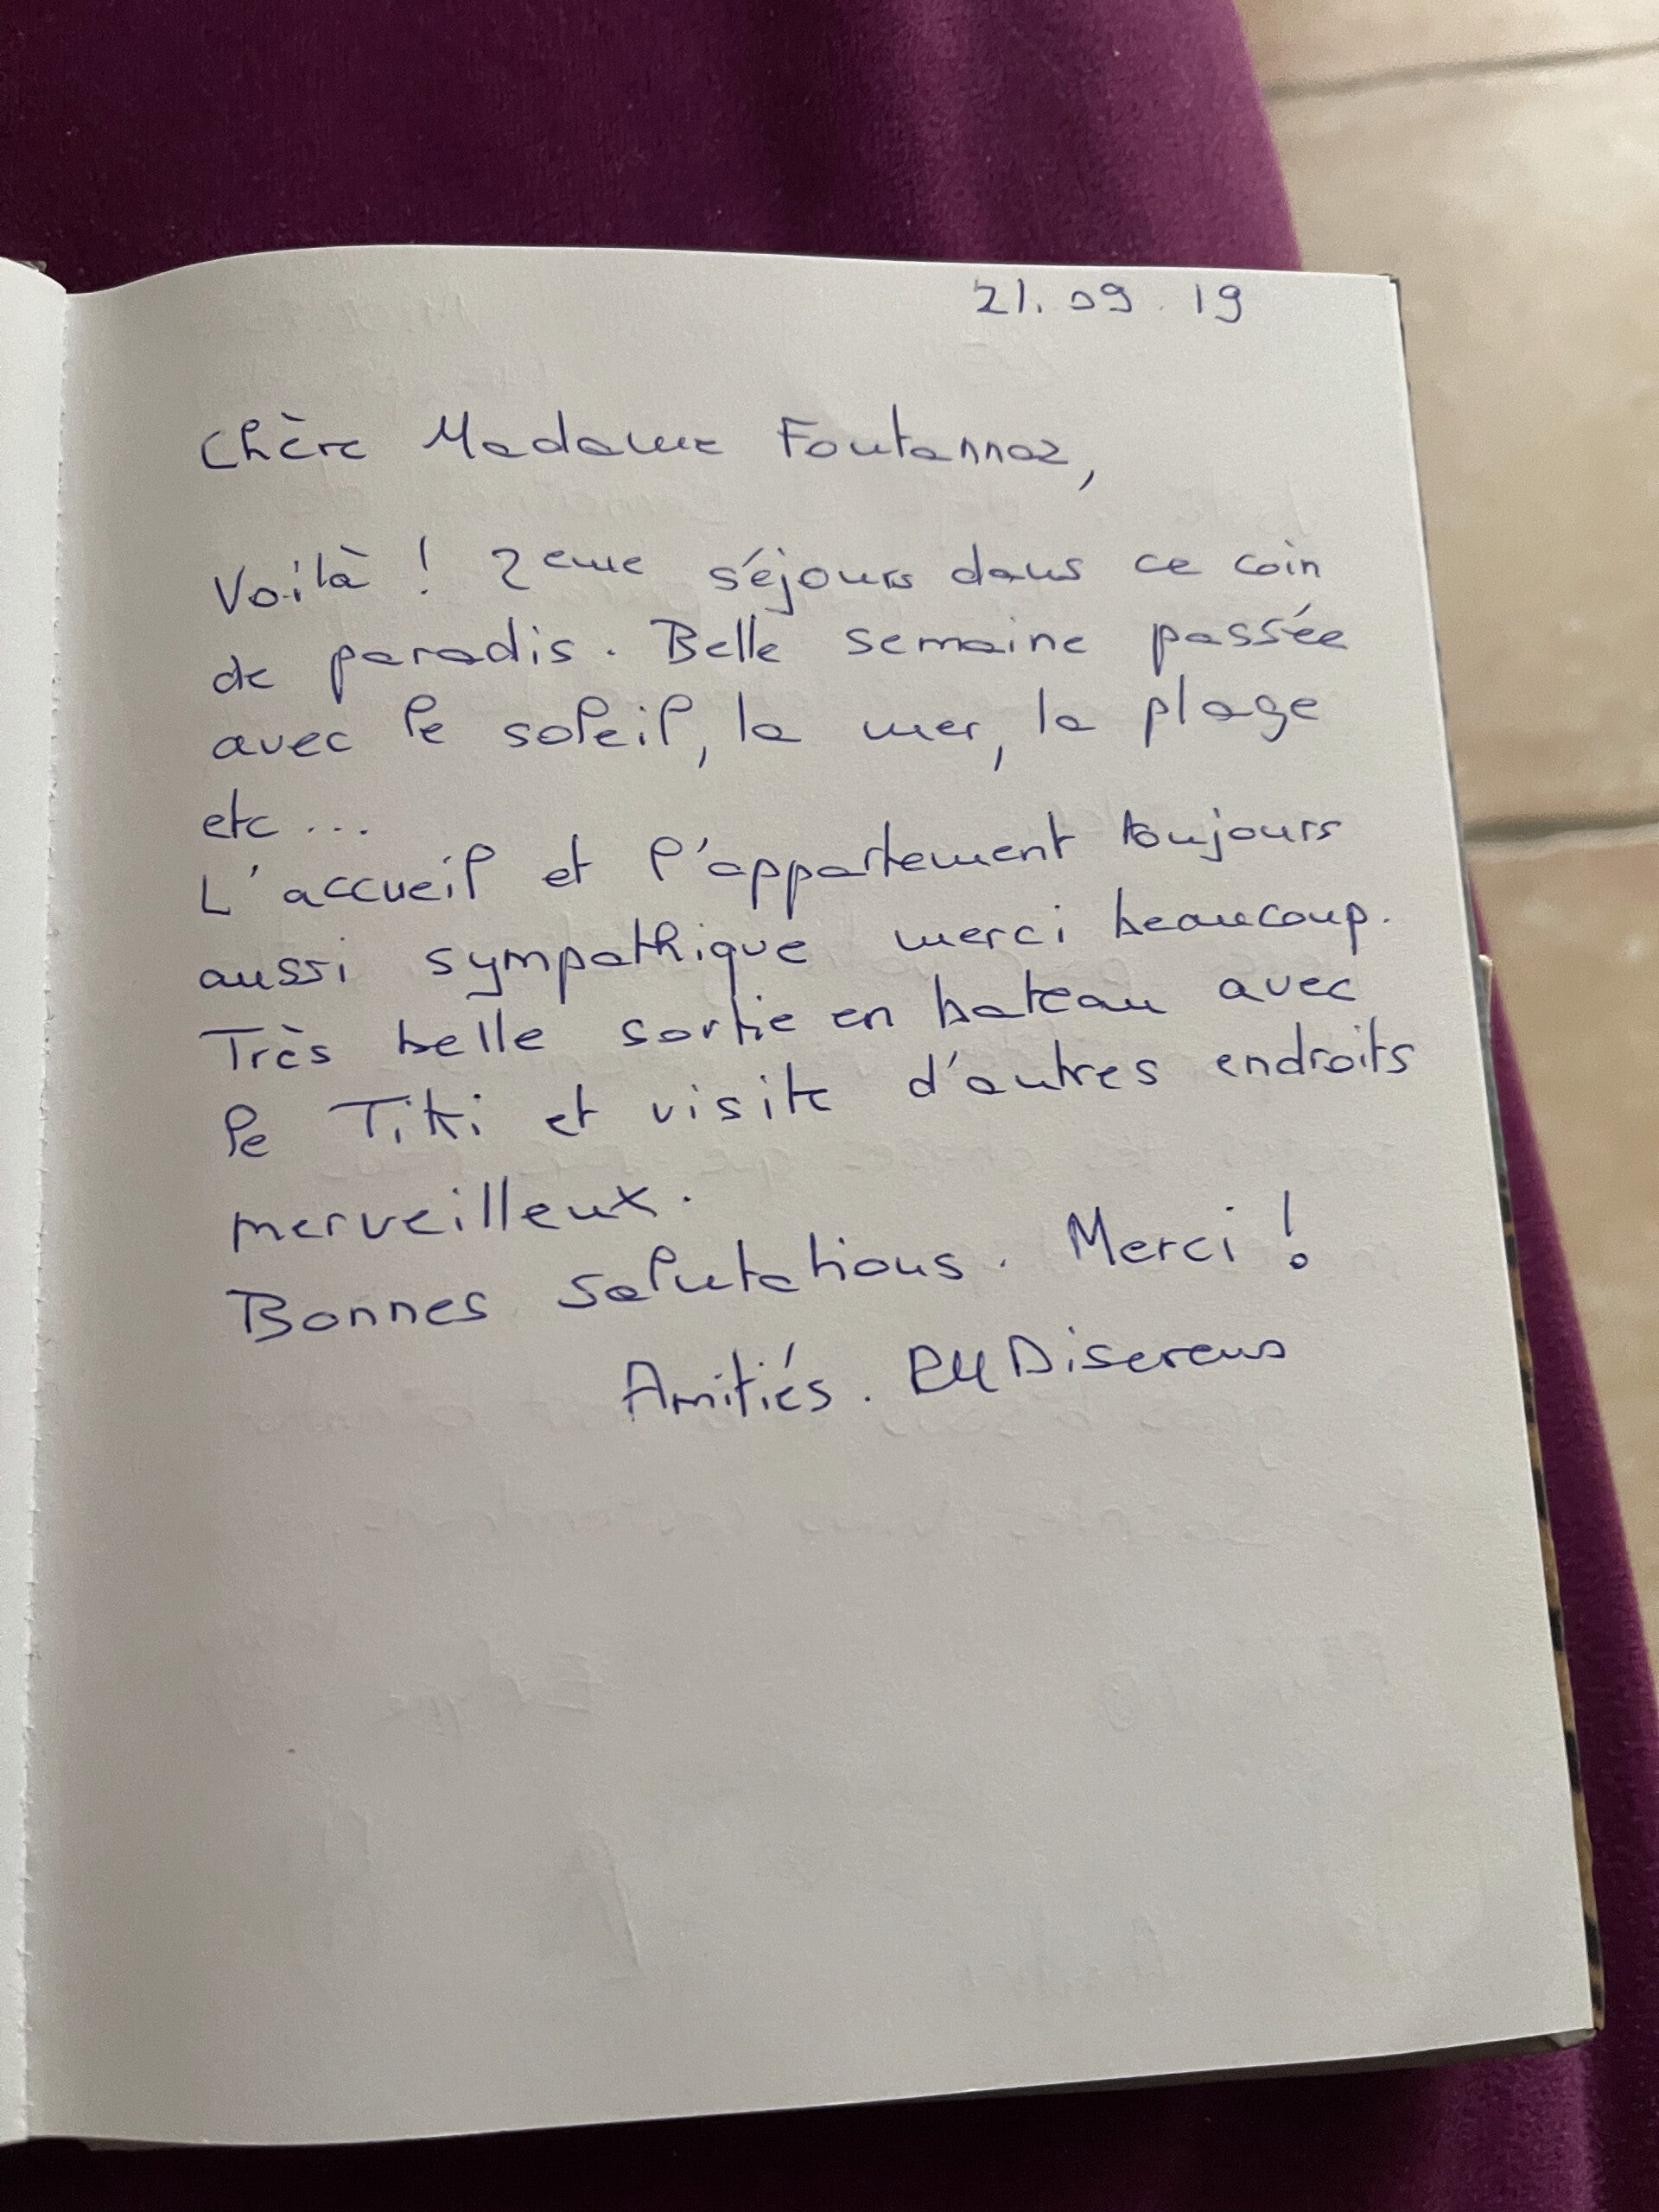 21.09.19
Chère Madame Fontannaz,
Voilà ! 2eme séjours dans ce coin
de paradis. Belle semaine passée
avec le soleil, la mer, la plage
etc...
L'accueil et l'appartement toujours
aussi sympathique merci beaucoup.
Très belle sortie en bateau avec
le Titi et visite d'autres endroits
merveilleux.
Bonnes salutations. Merci !
Amitiés. Diserens